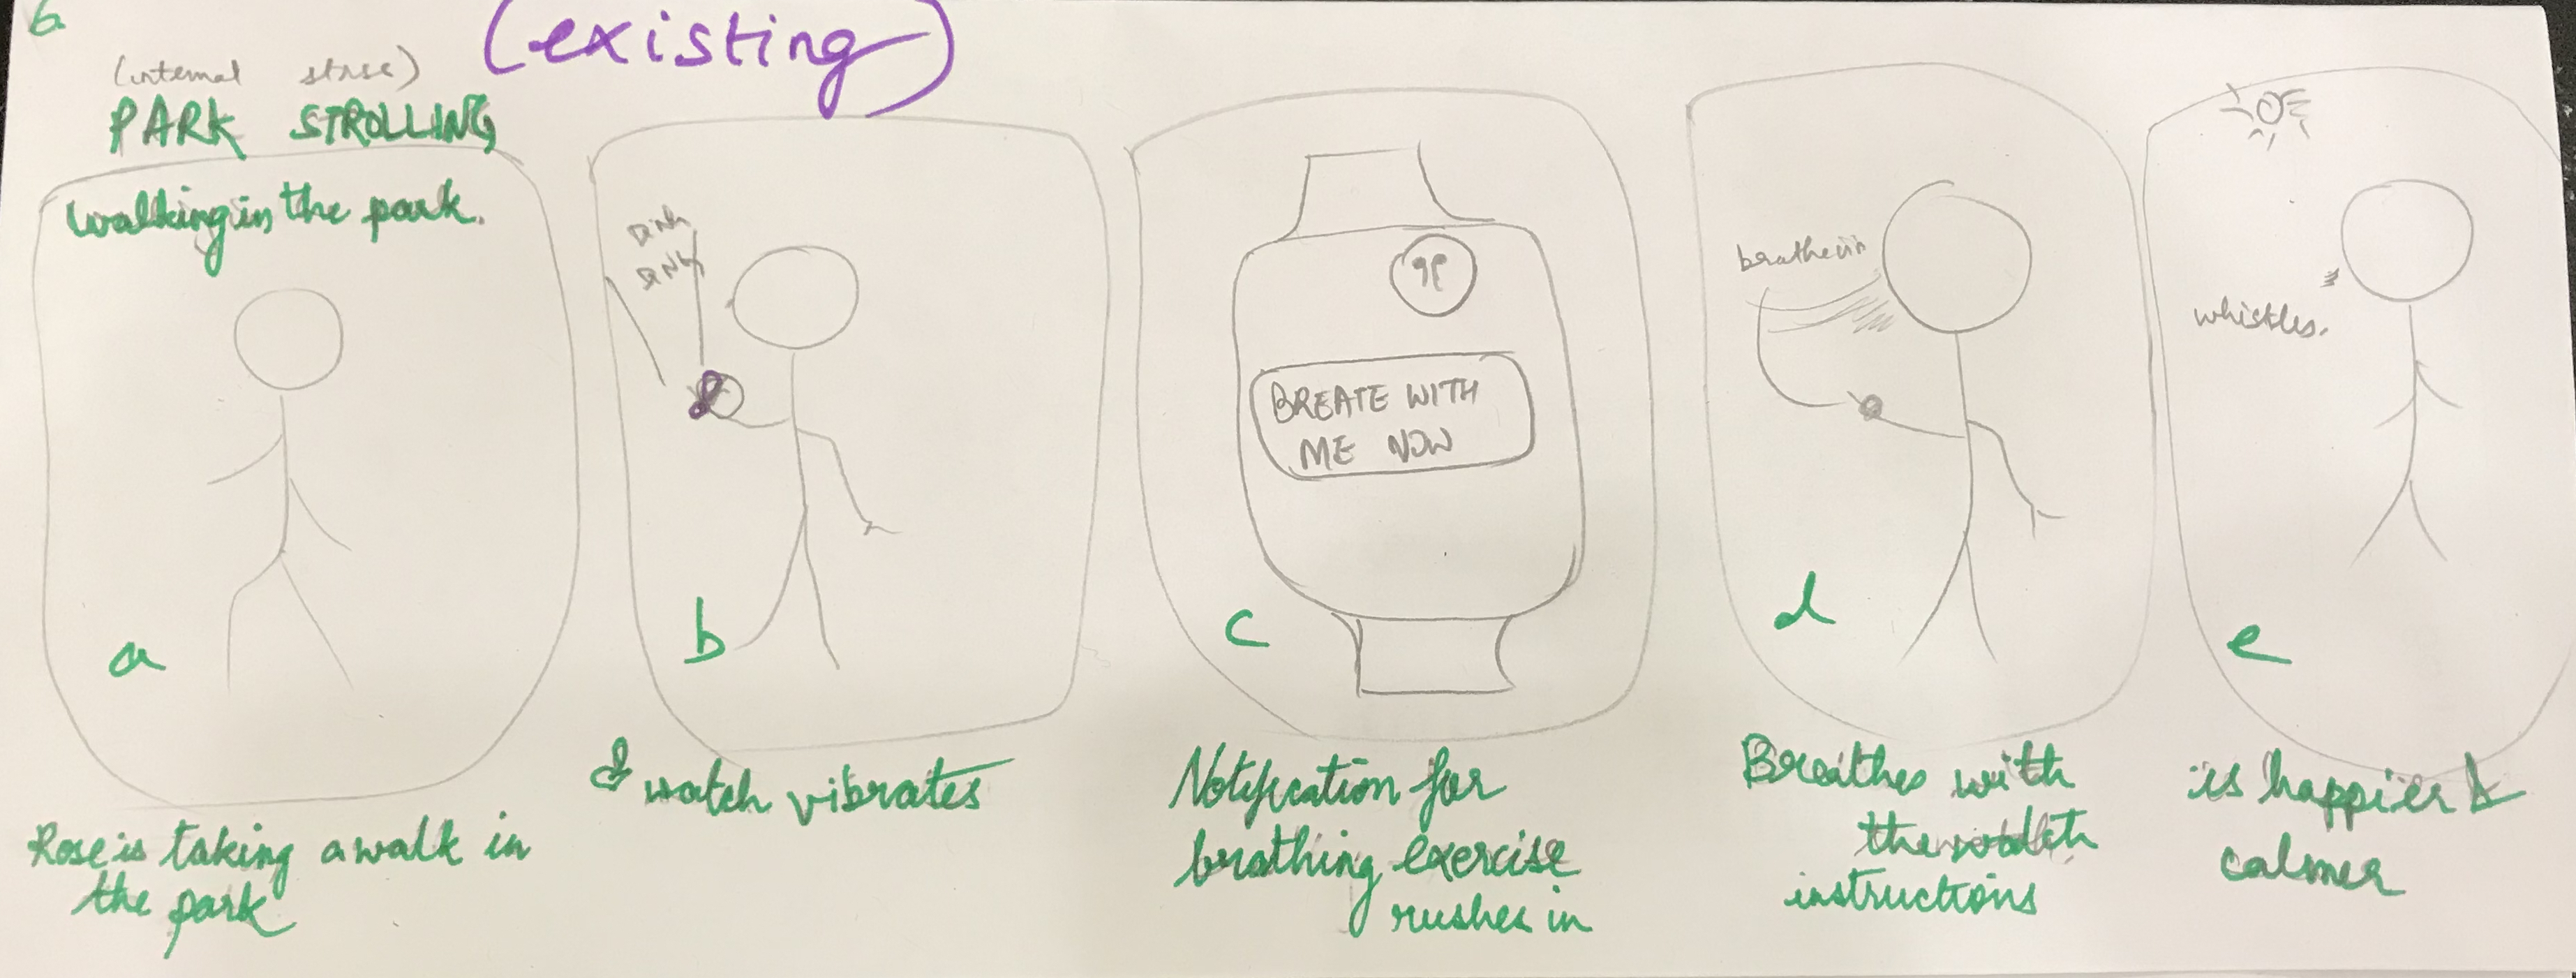 6
(existing)
(internal
PARK STROLLING
walking in the park.
a
Rose is taking a walk in
the park
b
& watch vibrates
9P
BREATE WITH
ME NOW
c
Notification for
brathing exercise
rushes in
d
Breathes with
the watch
instructions
whistles.
e
is happier &
calmer